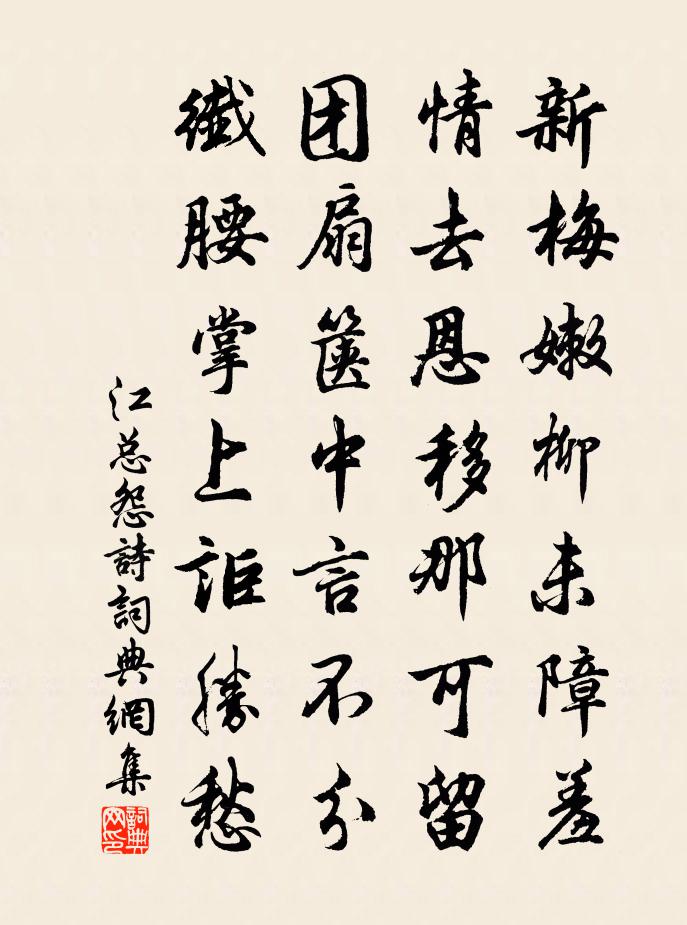 新梅嫩柳未障羞
情去恩移那可留
团扇箧中言不分
纖腰掌上詎勝愁
江总怨詩詞典網集
詞典网印